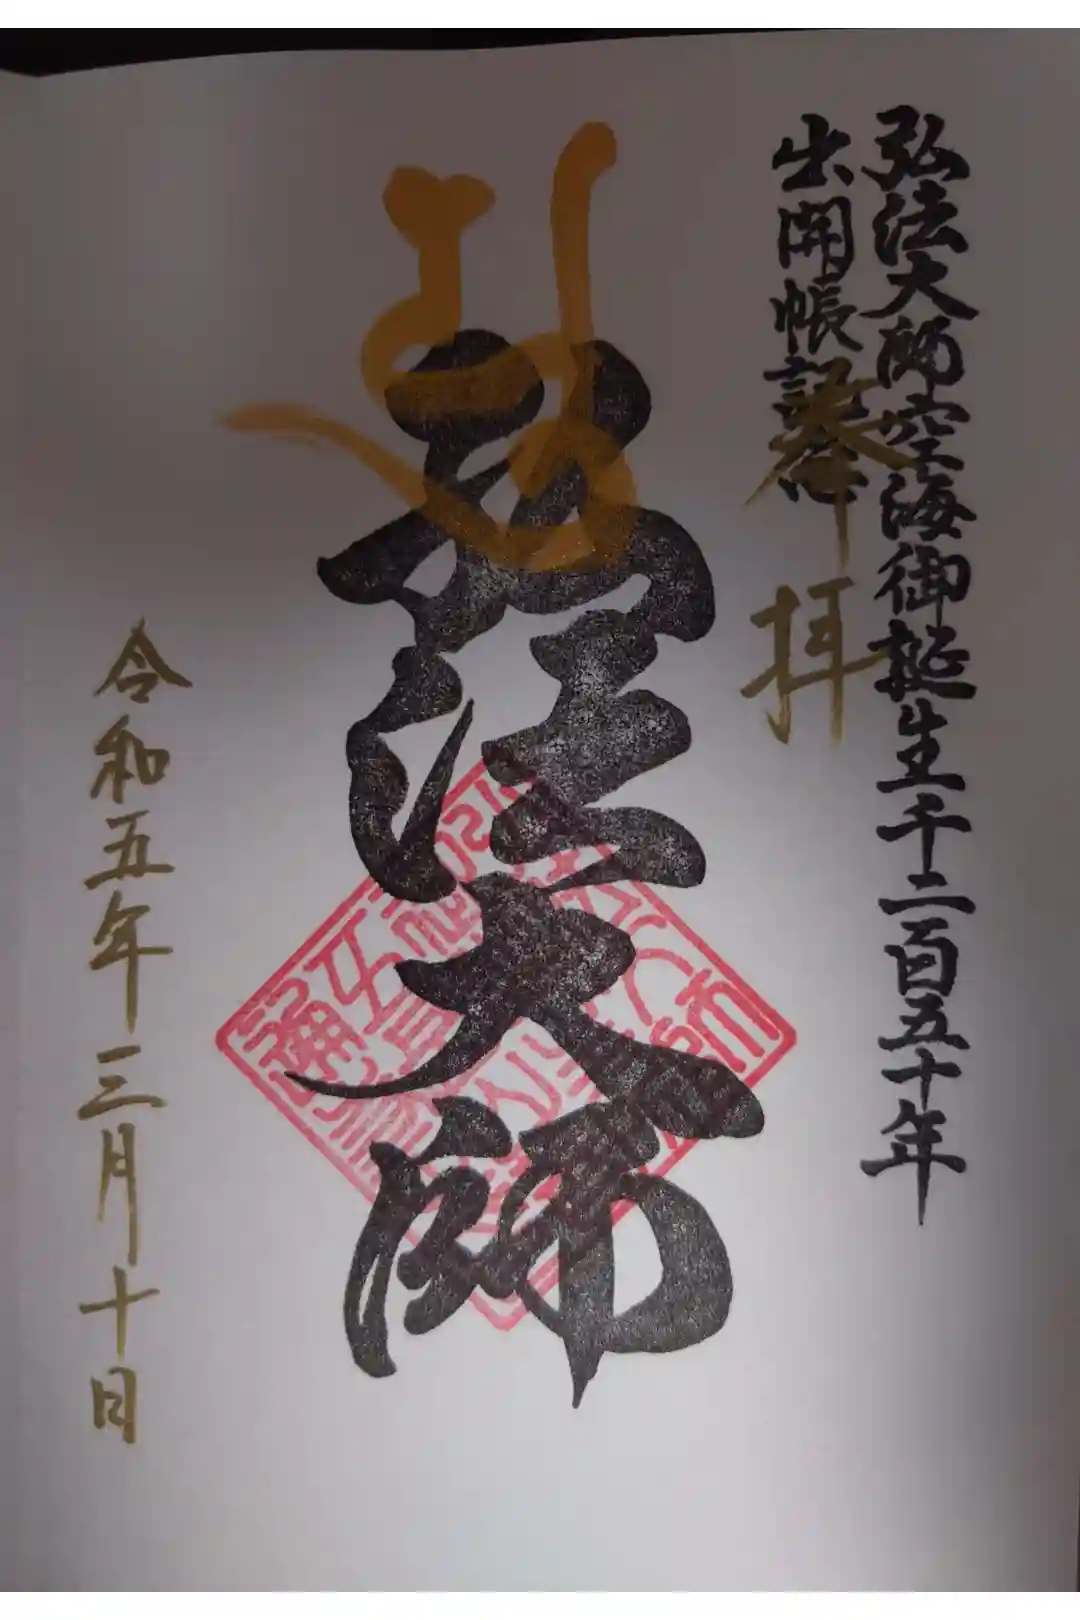 弘法大師空海御誕生千二百五十年
出開帳記念
奉拝
弘法大師
令和五年三月十日